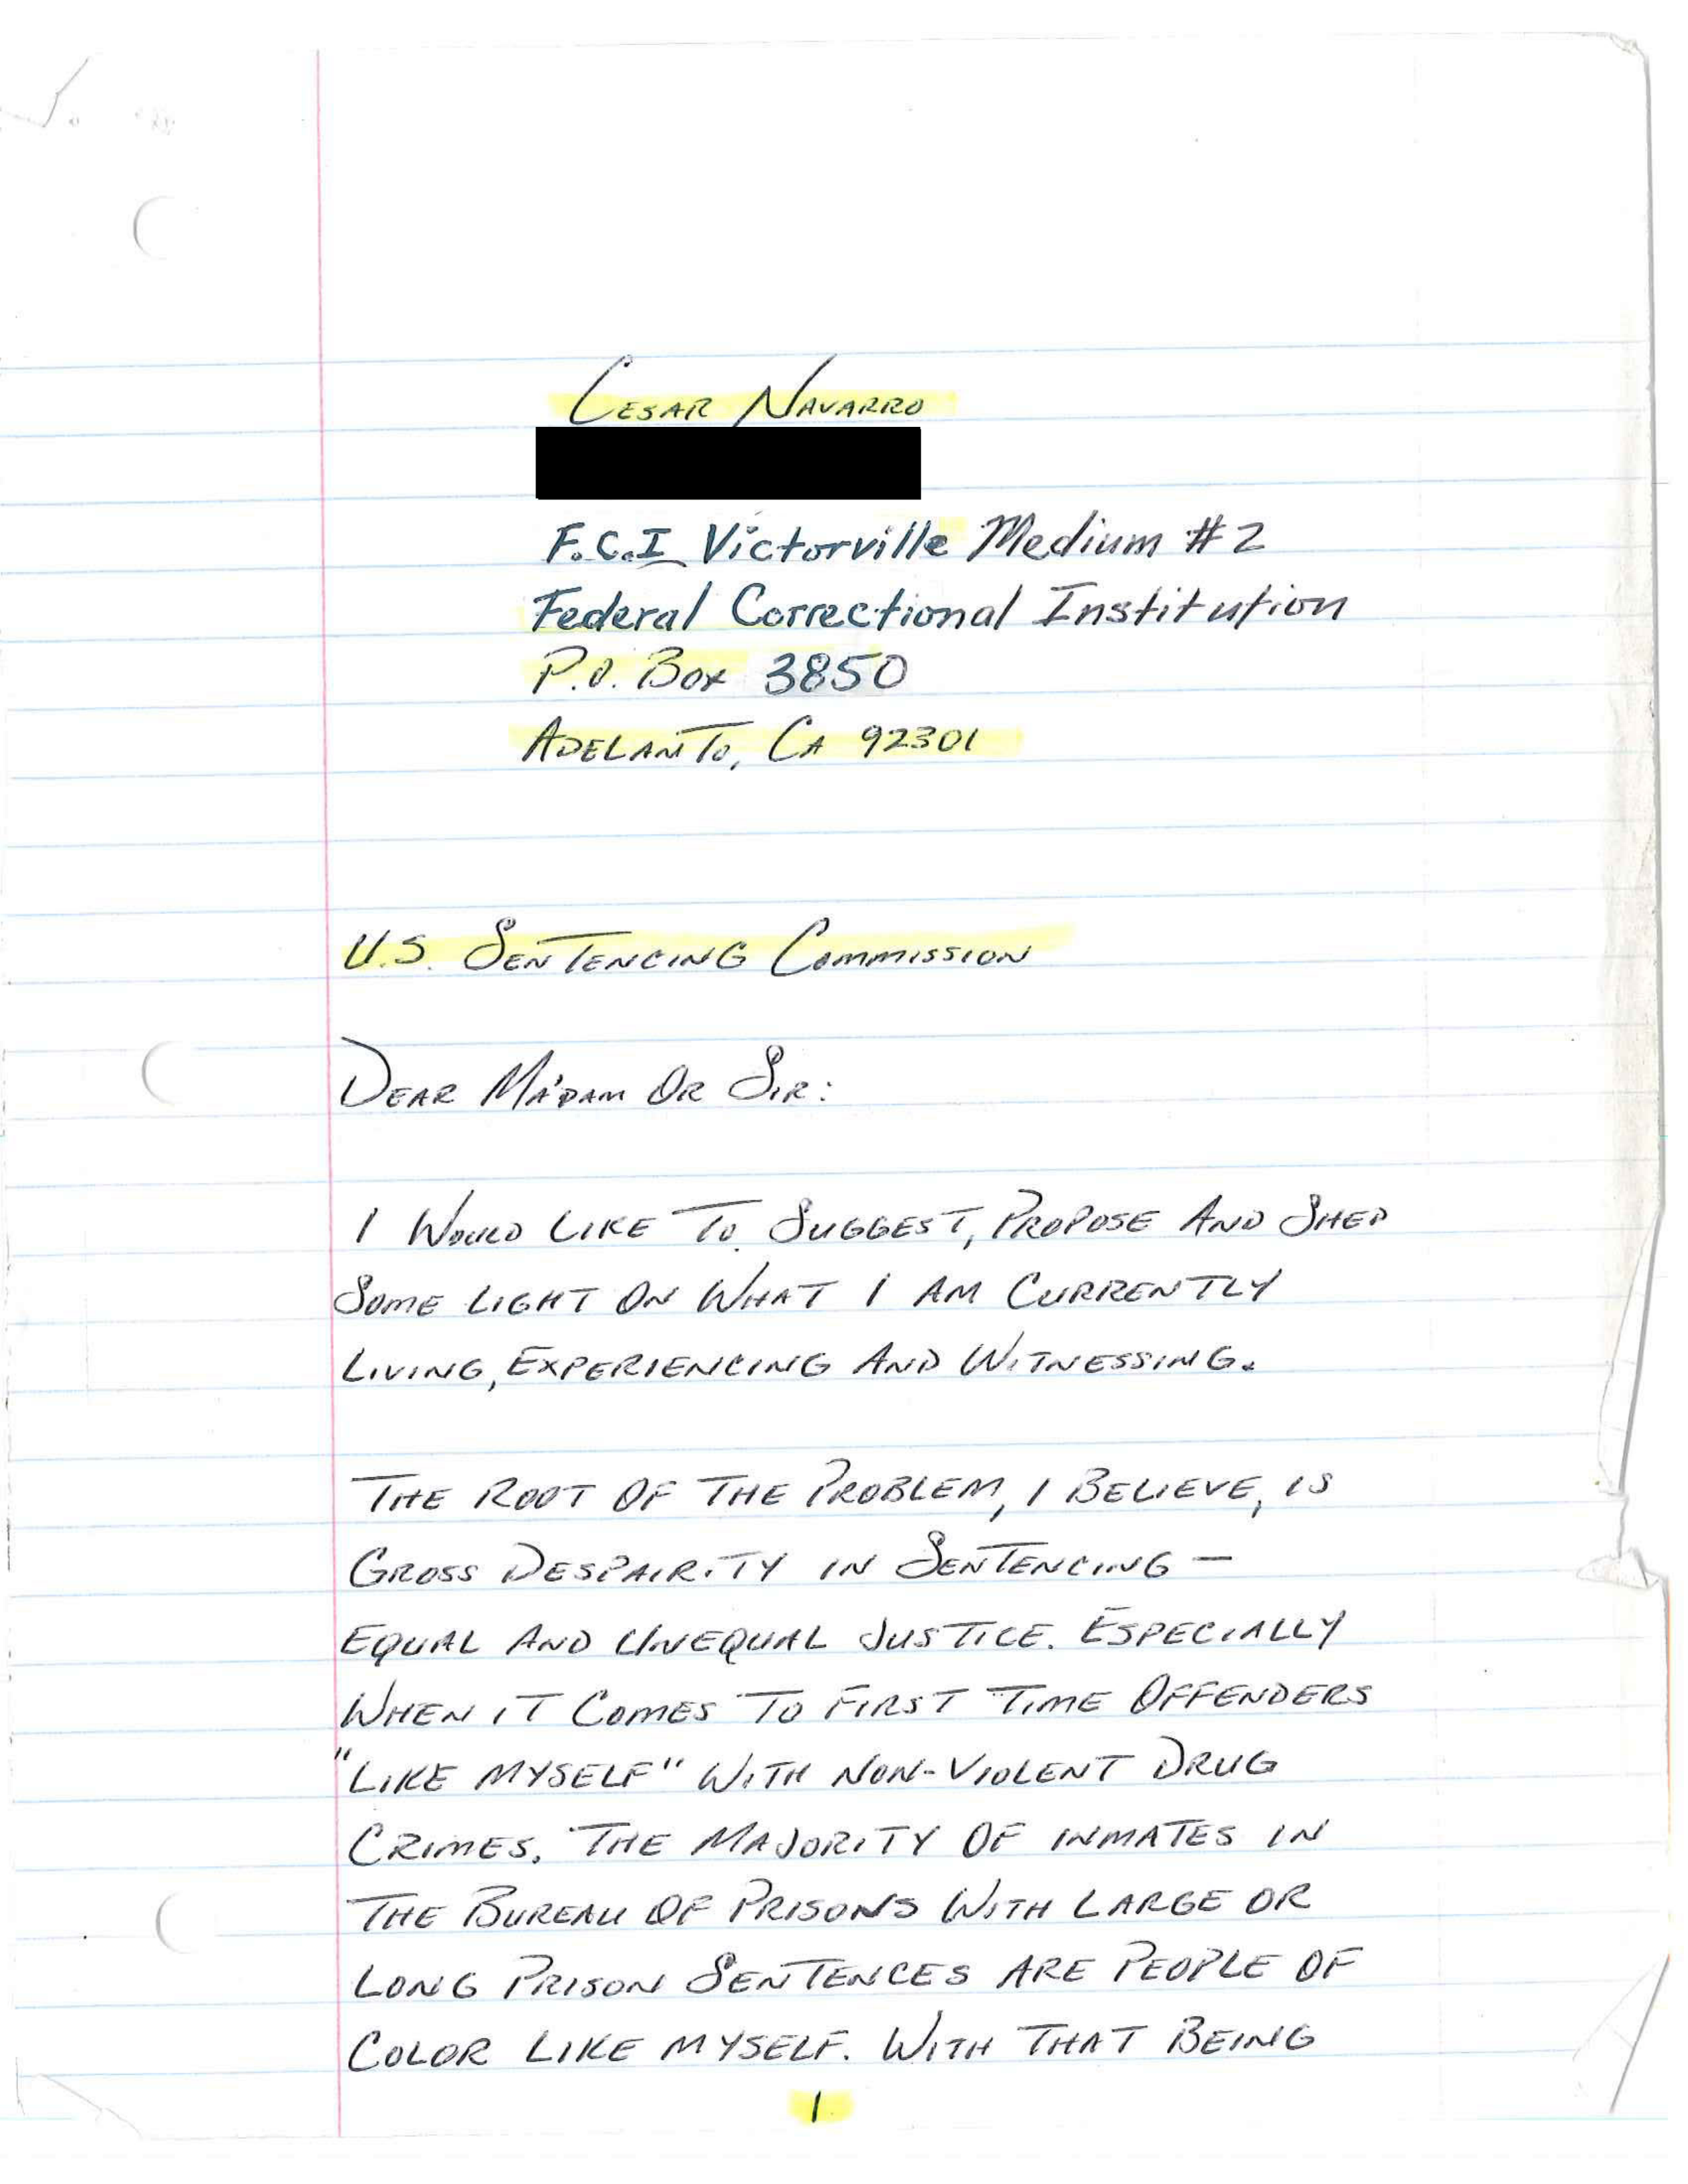 CESAR NAVARRO
F.C.I Victorville Medium #2
Federal Correctional Institution
P.O. Box 3850
ADELANTO, CA 92301
U.S. SENTENCING COMMISSION
DEAR MA'DAM OR SIR:
I WOULD LIKE TO SUGGEST, PROPOSE AND SHED
SOME LIGHT ON WHAT I AM CURRENTLY
LIVING, EXPERIENCING AND WITNESSING.
THE ROOT OF THE PROBLEM, I BELIEVE, IS
GROSS DESPAIRITY IN SENTENCING -
EQUAL AND UNEQUAL JUSTICE. ESPECIALLY
WHEN IT COMES TO FIRST TIME OFFENDERS
"LIKE MYSELF" WITH NON-VIOLENT DRUG
CRIMES. THE MAJORITY OF INMATES IN
THE BUREAU OF PRISONS WITH LARGE OR
LONG PRISON SENTENCES ARE PEOPLE OF
COLOR LIKE MYSELF. WITH THAT BEING
1